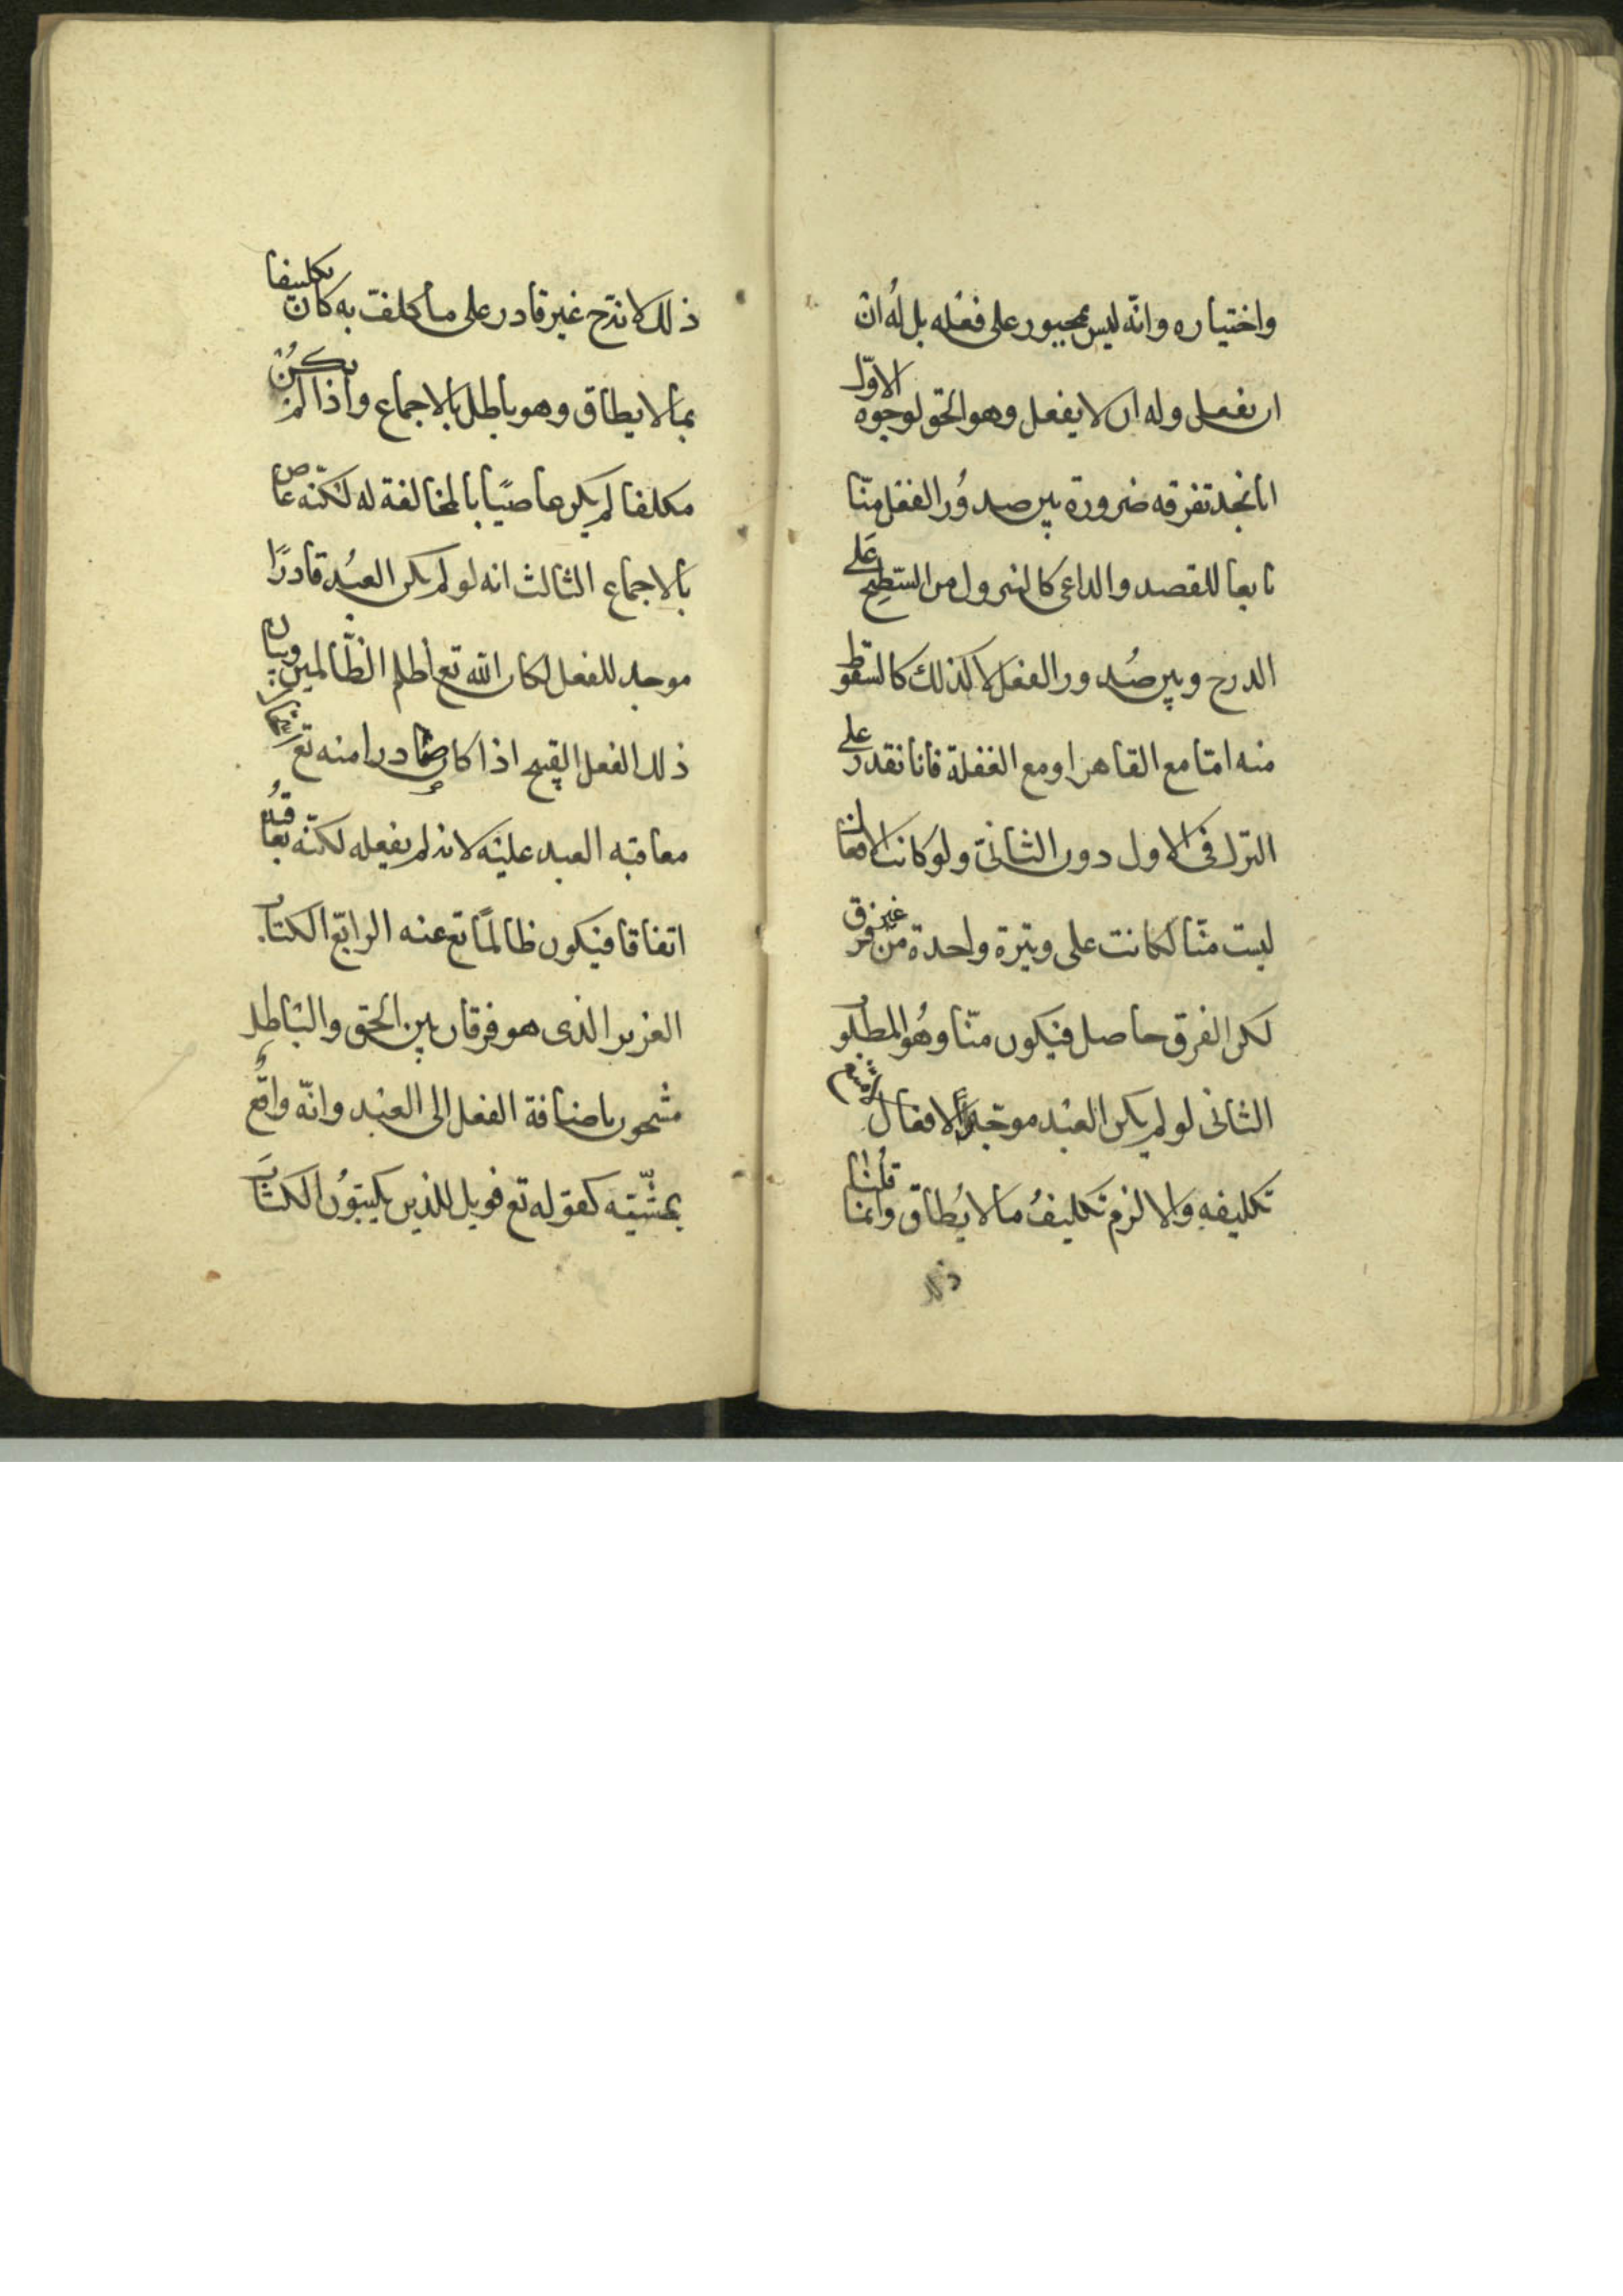 واختياره وانّه ليس بمجبور على فعله بل له ان
ان يفعل وله ان لا يفعل وهو الحق لوجوه الاوّل
انا نجد تفرقه ضرورة بين صدور الفعل منّا
تابعا للقصد والداعى كالنزول من السّطح على
الدرج وبين صُدور الفعل لا كذلك كالسقوط
منه امّا مع القاهر او مع الغفلة فانا نقدر على
الترك فى الاول دون الثانى ولو كانت الافعال
ليست منّا لكانت على وتيرة واحدة من غير فرق
لكن الفرق حاصل فيكون منّا وهُو المطلوب
الثانى لو لم يكن العبْد موجداً لافعاله لامتنع
تكليفه والا لزم تكليفُ ما لا يُطاق وانما قُلنا
ذلك
ذلك لانه ح غير قادر على ما كلف به كان تكليفا
بما لا يطاق وهو باطل بالاجماع واذا لم يكُنْ
مكلفا لم يكن عاصيًا بالمخالفة له لكنّه عاص
بالاجماع الثالث انه لو لم يكن العبْد قادرًا
موجد للفعل لكان الله تع اظلم الظّالمين وبيان
ذلك الفعل القبيح اذا كان صادرا منه تع
معاقبه العبد عليْه لانه لم يفعله لكنّه يعاقبُه
اتفاقا فيكون ظالمًا تع عنه الرابع الكتاب
العزيز الذى هو فرقان بين الحق والباطل
مشحون باضافة الفعل الى العبْد وانّه واقع
بمشّيته كقوله تع فويل للذين يكتبوُن الكتابَ